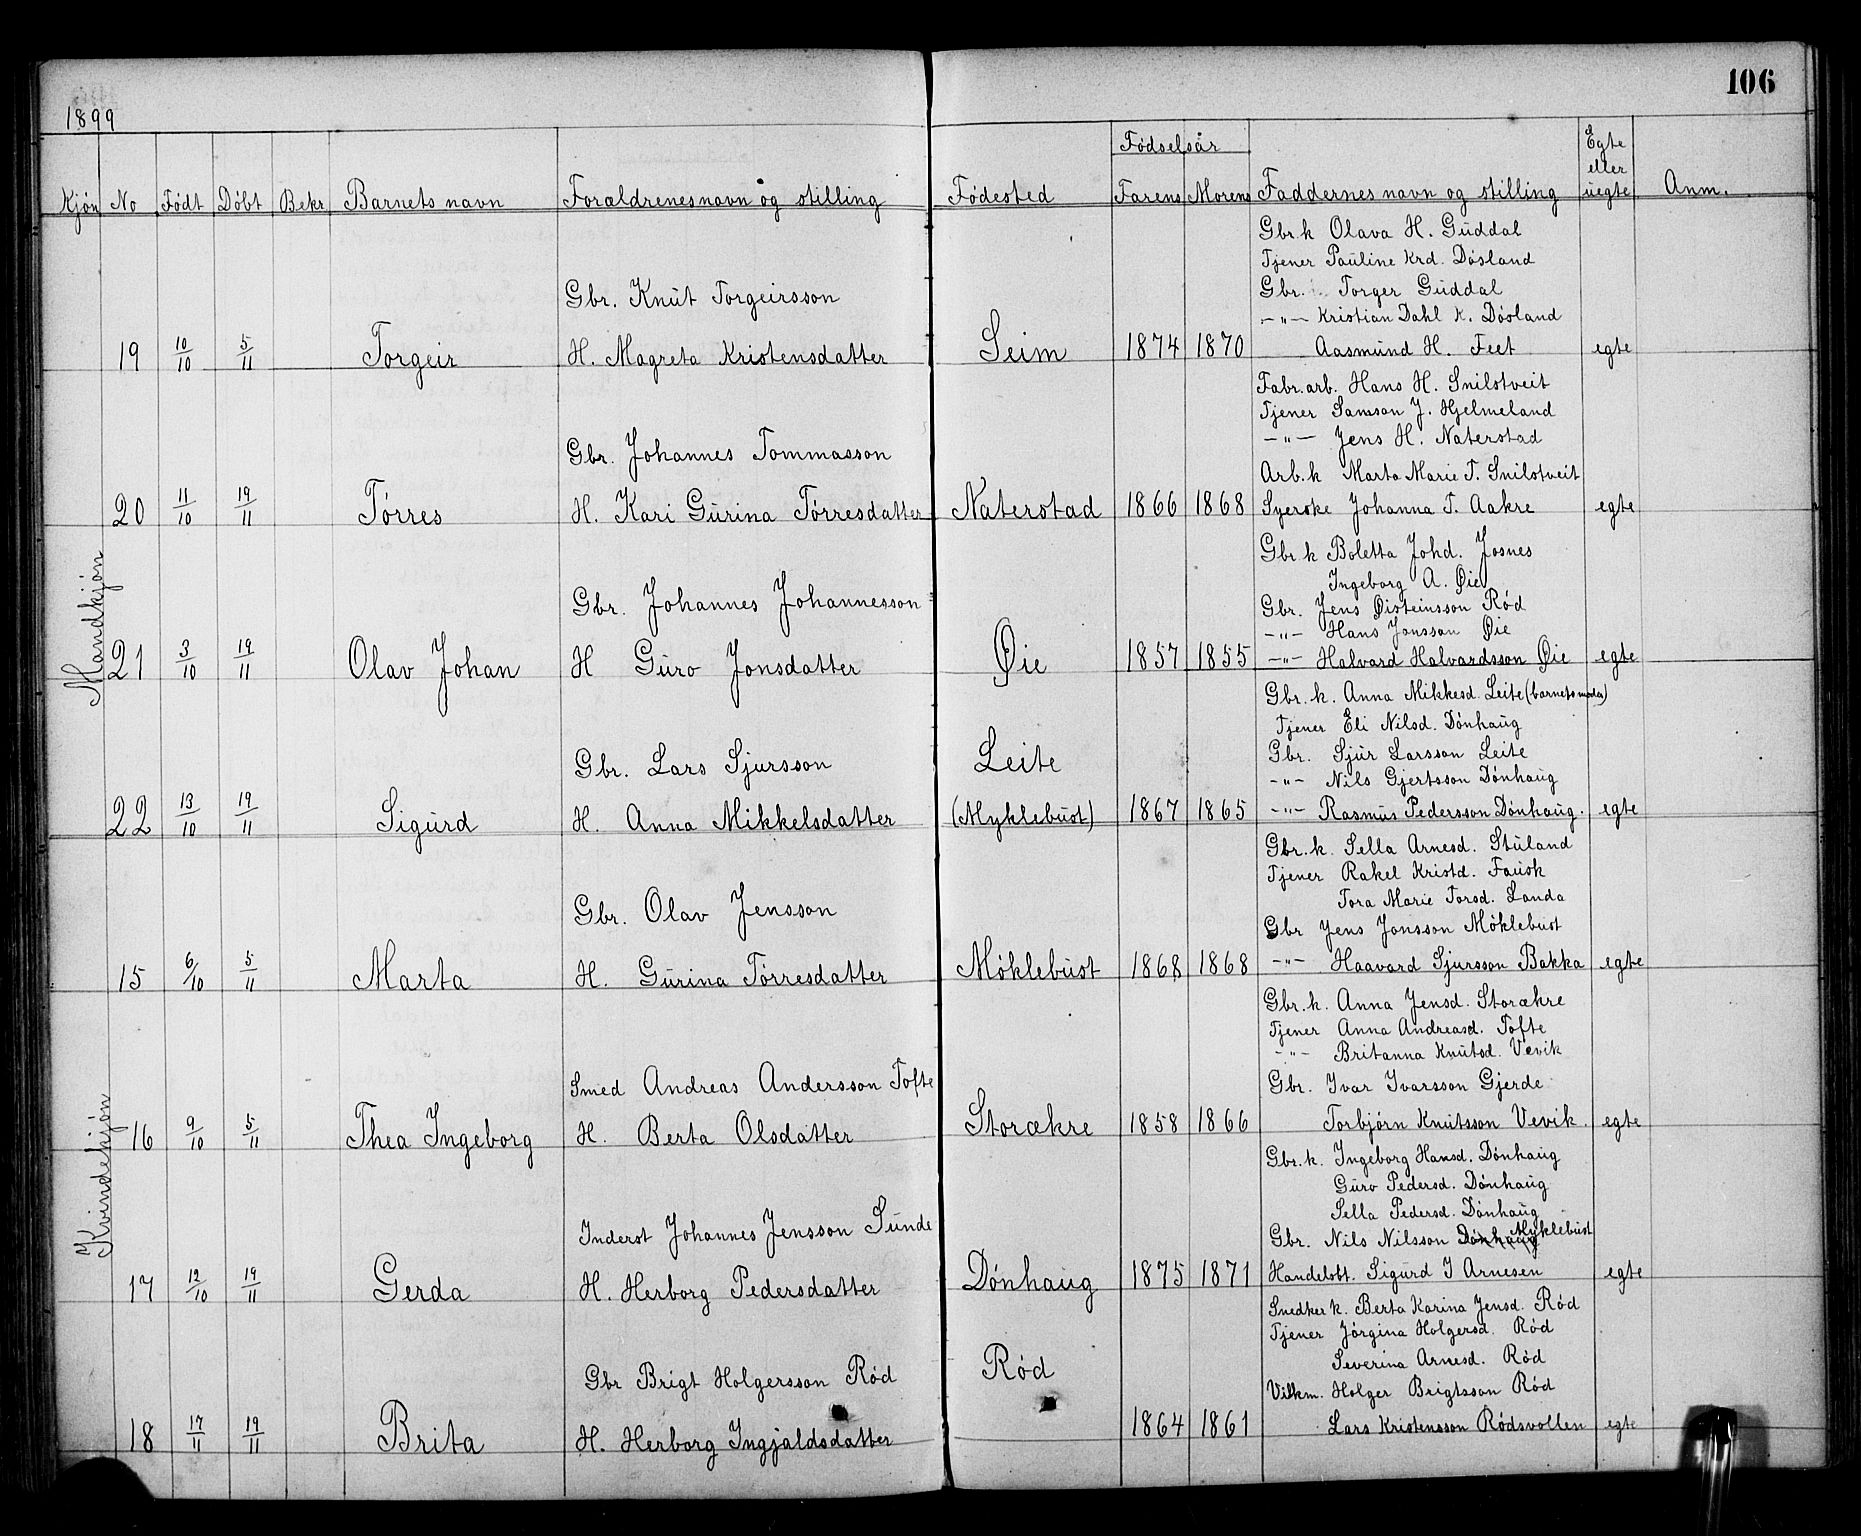 106
1899
Fødselsår
Egte eller uegte
Kjön No Født Døbt Bekr Barnets navn Foræeldrenesnavn og stilling Fødested Farens Morens Faddernes navn og stilling Anm.
Mandkjön
Gbr.k Olava H. Guddal
Tjener Pauline Krd. Døsland
Gbr. Knut Torgeirsson Gbr. Torger Guddal
-"- Kristian Dahl K. Døsland
19 10/10 5/11 Torgeir H. Magreta Kristensdatter Seim 1874 1870 Aasmund H. Feet egte
Fabr.arb. Hans H. Snilstveit
Tjener Samson J. Hjelmeland
Gbr. Johannes Tommasson -"- Jens H. Naterstad
Arb.k Marta Marie T. Snilstveit
20 11/10 19/11 Tørres H. Kari Gurina Tørresdatter Naterstad 1866 1868 Syerske Johanna T. Aakre egte
Gbr k Boletta Johd. Josnes
Ingeborg A. Øie
Gbr. Johannes Johannesson Gbr. Jens Øisteinsson Rød
-"- Hans Jonsson Øie
21 3/10 19/11 Olav Johan H Guro Jonsdatter Øie 1857 1855 -"- Halvard Halvardsson Øie egte
Gbr. k. Anna Mikkesd. Leite (barnets moder)
Tjener Eli Nilsd. Dønhaug
Gbr. Lars Sjursson Leite Gbr. Sjur Larsson Leite
-"- Nils Gjertsson Dønhaug
22 13/10 19/11 Sigurd H. Anna Mikkelsdatter (Myklebust) 1867 1865 -"- Rasmus Pedersson Dønhaug. egte
Kvindekjön
Gbr.k. Sella Arnesd. Stuland
Tjener Rakel Kristd. Fausk
Tora Marie Torsd. Landa
Gbr. Olav Jensson Gbr Jens Jonsson Møklebust
15 6/10 5/11 Marta H. Gurina Tørresdatter Møklebust 1868 1868 -"- Haavard Sjursson Bakka egte
Gbr.k. Anna Jensd. Storækre
Tjener Anna Andreasd. Tofte
-"- Britanna Knutsd. Vevik
Smed Andreas Andersson Tofte Gbr. Ivar Ivarsson Gjerde
16 9/10 5/11 Thea Ingeborg H. Berta Olsdatter Storækre 1858 1866 Torbjørn Knutsson Vevik egte
Gbr.k. Ingeborg Hansd. Dønhaug
Guro Pedersd. Dønhaug
Sella Pedersd. Dønhaug
Inderst Johannes Jensson Sunde Gbr. Nils Nilsson Dønhaug Myklebust
17 12/10 19/11 Gerda H. Herborg Pedersdatter Dønhaug 1875 1871 Handelsbt. Sigurd J Arnesen egte
Snedker k. Berta Karina Jensd. Rød
Tjener Jørgina Holgersd. Rød
Severina Arnesd. Rød
Gbr Brigt Holgersson Rød Rød Holger Brigtsson Rød
18 17/11 19/11 Brita H. Herborg Ingjaldsdatter 1864 1861 Lars Kristensson Rødsvollen egte